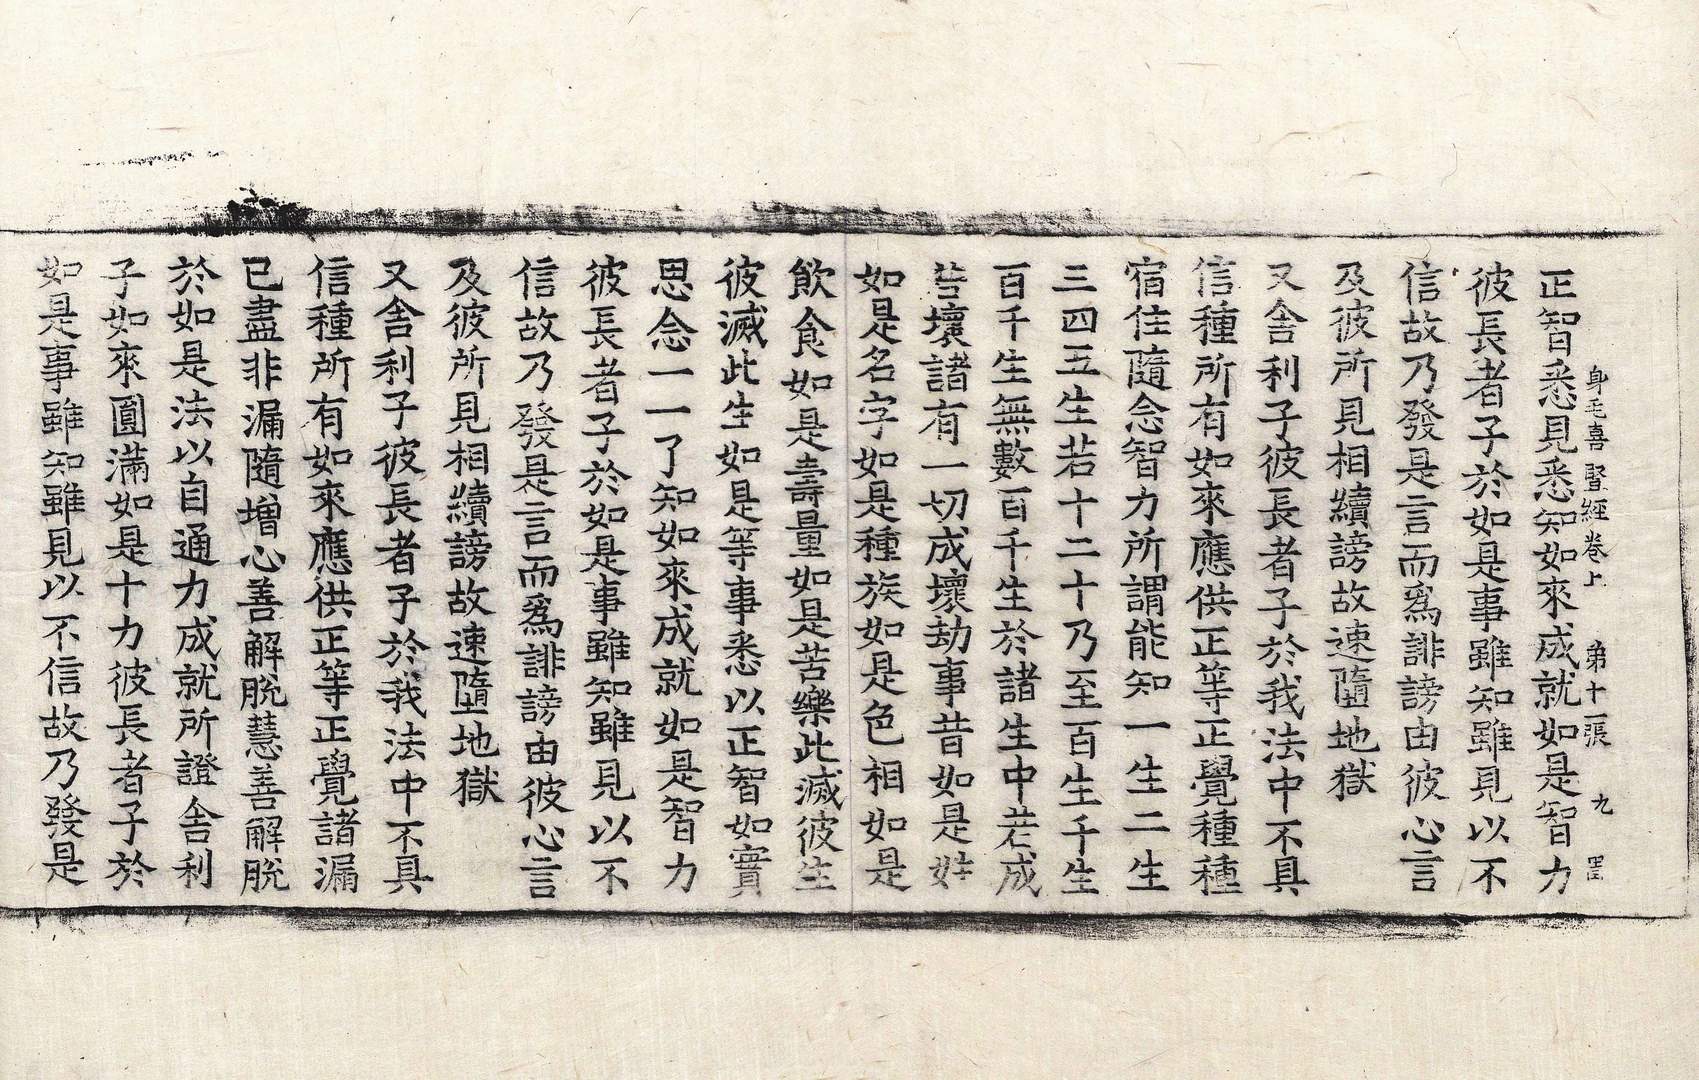 身毛喜竪經卷上 弟十一張 九
正智悉見悉知如來成就如是智力
彼長者子於如是事雖知雖見以不
信故乃發是言而爲誹謗由彼心言
及彼所見相續謗故速墮地獄
又舎利子彼長者子於我法中不具
信種所有如來應供正等正覺種種
宿住隨念智力所謂能知一生二生
三四五生若十二十乃至百生千生
百千生無數百千生於諸生中若成
若壞諸有一切成壞劫事昔如是姓
如是名字如是種族如是色相如是
飲食如是壽量如是苦樂此滅彼生
彼滅此生如是等事悉以正智如實
思念一一了知如來成就如是智力
彼長者子於如是事雖知雖見以不
信故乃發是言而爲誹謗由彼心言
及彼所見相續謗故速墮地獄
又舎利子彼長者子於我法中不具
信種所有如來應供正等正覺諸漏
已盡非漏隨增心善解脫慧善解脫
於如是法以自通力成就所證舎利
子如來圓滿如是十力彼長者子於
如是事雖知雖見以不信故乃發是